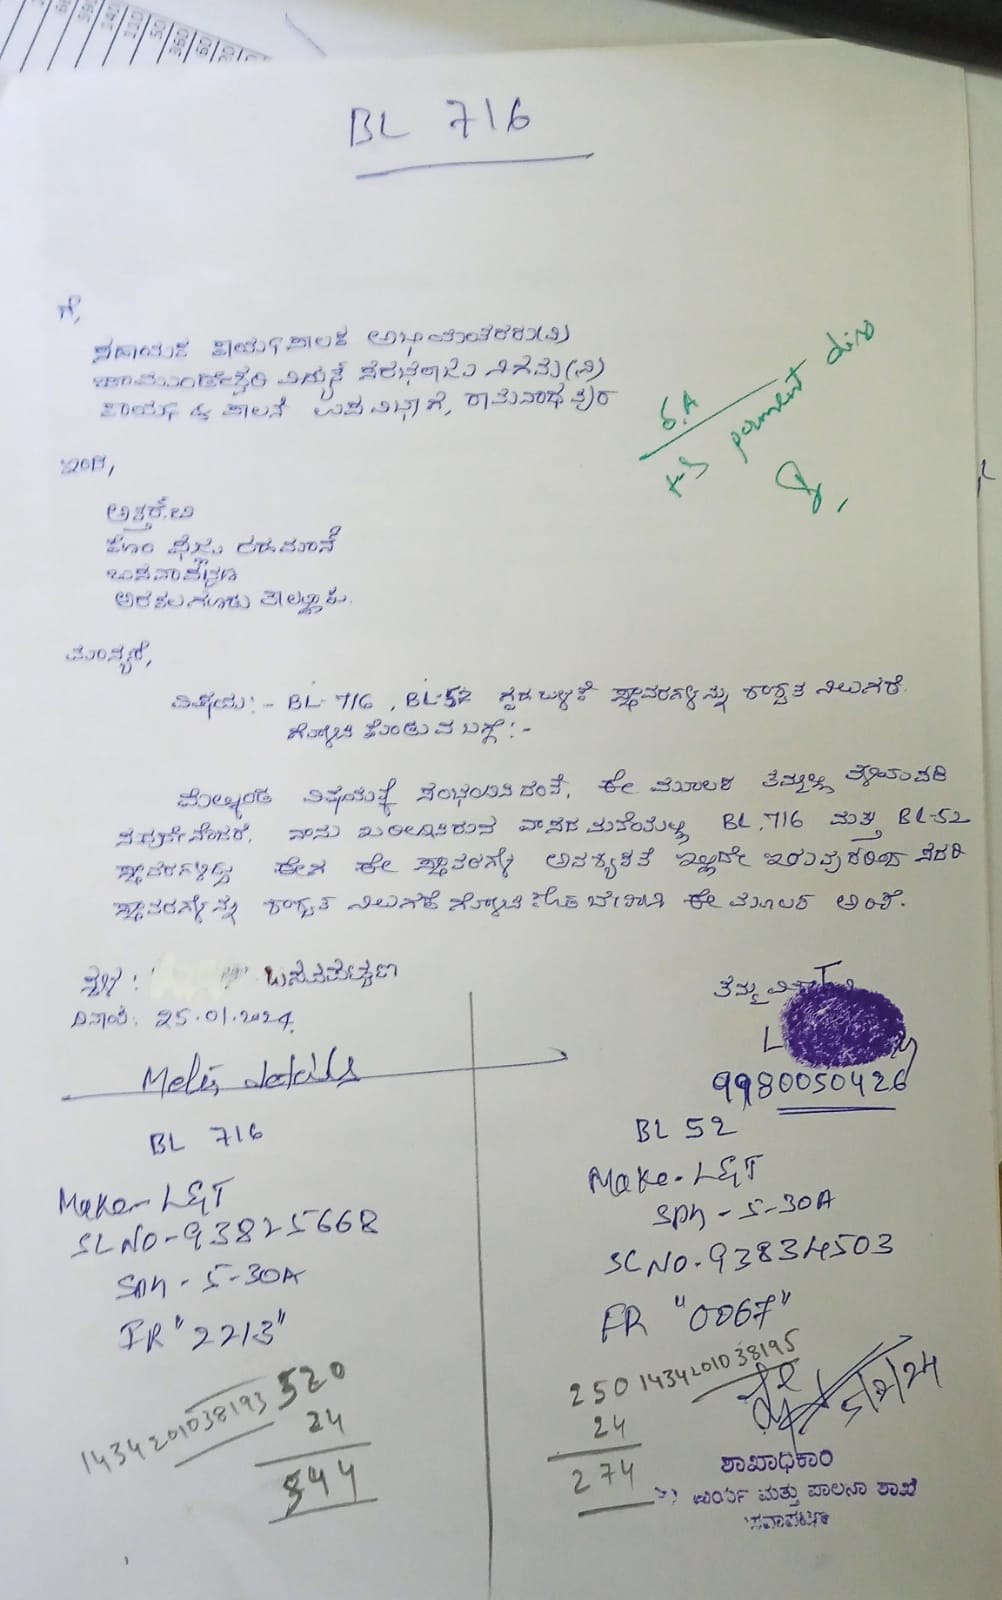 BL 716
ಗೆ,
ಸಹಾಯಕ ಕಾರ್ಯಪಾಲಕ ಅಭಿಯಂತರರು(ವಿ)
ಚಾಮುಂಡೇಶ್ವರಿ ವಿದ್ಯುತ್ ಸರಬರಾಜು ನಿಗಮ(ನಿ)
ಕಾರ್ಯ & ಪಾಲನೆ ಉಪ ವಿಭಾಗ, ರಾಮನಾಥಪುರ
S.A
perment dis
ಇಂದ,
ಕೋಂ ರಹಮಾನ್
ಅರಕಲಗೂಡು ತಾಲ್ಲೂಕು.
ಮಾನ್ಯರೆ,
ವಿಷಯ:- BL-716, BL-52 ಗೃಹ ಬಳಕೆ ಸ್ಥಾವರಗಳನ್ನು ಶಾಶ್ವತ ನಿಲುಗಡೆ
ಗೊಳಿಸಿ ಕೊಡುವ ಬಗ್ಗೆ:-
ಮೇಲ್ಕಂಡ ವಿಷಯಕ್ಕೆ ಸಂಬಂಧಿಸಿದಂತೆ, ಈ ಮೂಲಕ ತಮ್ಮಲ್ಲಿ
ನಾನು ವಾಸದ ಮನೆಯಲ್ಲಿ BL.716 ಮತ್ತು BL-52
ಸ್ಥಾವರಗಳಿದ್ದು ಈ ಸ್ಥಾವರಗಳ ಅವಶ್ಯಕತೆ ಇಲ್ಲದೇ ಇರುವುದರಿಂದ ಸದರಿ
ಸ್ಥಾವರಗಳನ್ನು ಶಾಶ್ವತ ನಿಲುಗಡೆ ಗೊಳಿಸಿ ಈ ಮೂಲಕ ಅರ್ಜಿ.
ಸ್ಥಳ: ಬಸವಪಟ್ಟಣ
ದಿನಾಂಕ: 25.01.2024
ತಮ್ಮ ವಿಶ್ವಾಸಿ
9980050426
Meter details
BL 716
Make-L&T
SL NO-93825668
Sph-5-30A
FR "2213"
1434201038193
520
24
544
BL 52
Make-L&T
Sph-5-30A
SL NO-93834503
FR "0067"
1434201038195
250
24
274
5/2/24
ಶಾಖಾಧಿಕಾರಿ
ಕಾರ್ಯ ಮತ್ತು ಪಾಲನಾ ಶಾಖೆ